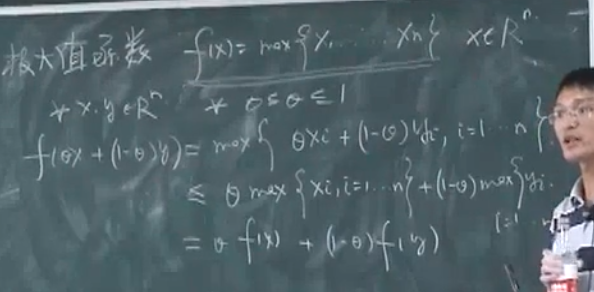 极大值函数 f(x) = max{x₁ ...... xₙ} x∈Rⁿ
∀ x.y∈Rⁿ ∀ 0≤θ≤1
f(θx+(1-θ)y) = max{ θxᵢ+(1-θ)yᵢ, i=1...n}
≤ θ max{xᵢ, i=1...n}+(1-θ)max{yᵢ.
i=1...n
= θ f(x) + (1-θ)f(y)